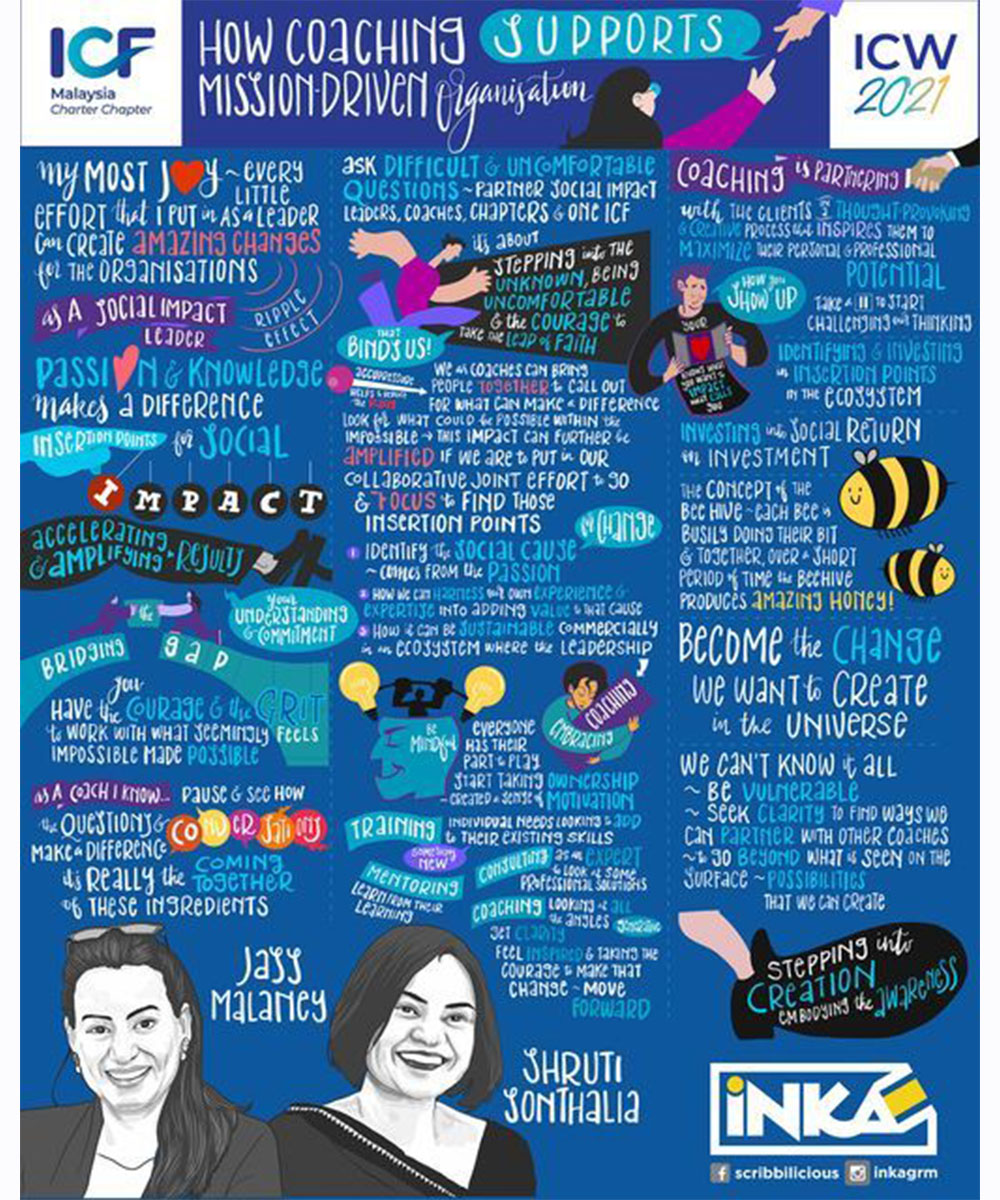 ICF
Malaysia
Charter Chapter
HOW COACHING SUPPORTS
MISSION-DRIVEN Organisation
ICW
2021
my MOST JOY ~ EVERY
LITTLE
EFFORT that I PUT in AS a LEADER
Can CREATE AMAZING CHANGES
for THE ORGANISATIONS
as A SOCIAL IMPACT
LEADER
RIPPLE
EFFECT
PASSION & KNOWLEDGE
makes a DIFFERENCE
INSERTION POINTS for SOCIAL
IMPACT
ACCELERATING
& AMPLIFYING RESULTS
your
UNDERSTANDING
& COMMITMENT
BRIDGING the gap
you
HAVE the COURAGE & the GRIT
to WORK WITH WHAT SEEMINGLY FEELS
IMPOSSIBLE MADE POSSIBLE
as A COACH I KNOW... PAUSE & SEE HOW
the QUESTIONS & CONVERSATIONS
MAKE a DIFFERENCE
it's REALLY the COMING
TOGETHER
of THESE INGREDIENTS
JASS
MALANEY
ASK DIFFICULT & UNCOMFORTABLE
QUESTIONS ~ PARTNER SOCIAL IMPACT
LEADERS, COACHES, CHAPTERS & ONE ICF
it's ABOUT
STEPPING into THE
UNKNOWN, BEING
UNCOMFORTABLE
& the COURAGE to
TAKE the LEAP of FAITH
THAT
BINDS US!
WE as COACHES CAN BRING
PEOPLE TOGETHER to CALL OUT
FOR WHAT CAN MAKE a DIFFERENCE
LOOK for WHAT COULD be POSSIBLE WITHIN the
IMPOSSIBLE → THIS IMPACT CAN FURTHER be
AMPLIFIED IF WE ARE to PUT in OUR
COLLABORATIVE JOINT EFFORT to GO
& FOCUS to FIND THOSE
INSERTION POINTS
for CHANGE
1 IDENTIFY the SOCIAL CAUSE
~ COMES FROM the PASSION
2 HOW WE CAN HARNESS our OWN EXPERIENCE &
EXPERTISE INTO ADDING VALUE to THAT CAUSE
3 HOW it CAN BE SUSTAINABLE COMMERCIALLY
in an ECOSYSTEM WHERE the LEADERSHIP
EMBRACING
COACHING
BE
MINDFUL
EVERYONE
HAS THEIR
PART to PLAY
START TAKING OWNERSHIP
~ CREATED a SENSE of MOTIVATION
TRAINING INDIVIDUAL NEEDS LOOKING to ADD
to THEIR EXISTING SKILLS
SOMETHING
NEW
MENTORING
LEARN FROM THEIR
LEARNING
CONSULTING as an EXPERT
to LOOK at SOME
PROFESSIONAL SOLUTIONS
COACHING LOOKING at ALL
the ANGLES
GET CLARITY
FEEL INSPIRED & TAKING THE
COURAGE to MAKE THAT
CHANGE ~ MOVE
FORWARD
SHRUTI
SONTHALIA
COACHING is PARTNERING
with THE CLIENTS in a THOUGHT-PROVOKING
& CREATIVE PROCESS that INSPIRES THEM TO
MAXIMIZE THEIR PERSONAL & PROFESSIONAL
POTENTIAL
HOW you
SHOW UP
YOUR
KNOWS WHAT
YOU WANT to
IMPACT
WHAT CALLS
YOU
TAKE a II TO START
CHALLENGING our THINKING
IDENTIFYING & INVESTING
in INSERTION POINTS
IN THE ECOSYSTEM
INVESTING into SOCIAL RETURN
on INVESTMENT
THE CONCEPT of THE
BEE HIVE ~ EACH BEE is
BUSILY DOING THEIR BIT
& TOGETHER, OVER a SHORT
PERIOD of TIME the BEEHIVE
PRODUCES AMAZING HONEY!
BECOME the CHANGE
WE WANT to CREATE
in the UNIVERSE
WE CAN'T KNOW it ALL
~ BE VULNERABLE
~ SEEK CLARITY TO FIND WAYS WE
CAN PARTNER WITH OTHER COACHES
~ to GO BEYOND WHAT is SEEN ON THE
SURFACE ~ POSSIBILITIES
THAT WE CAN CREATE
STEPPING into
CREATION
EMBODYING the AWARENESS
iNKA
scribbilicious inkagrm